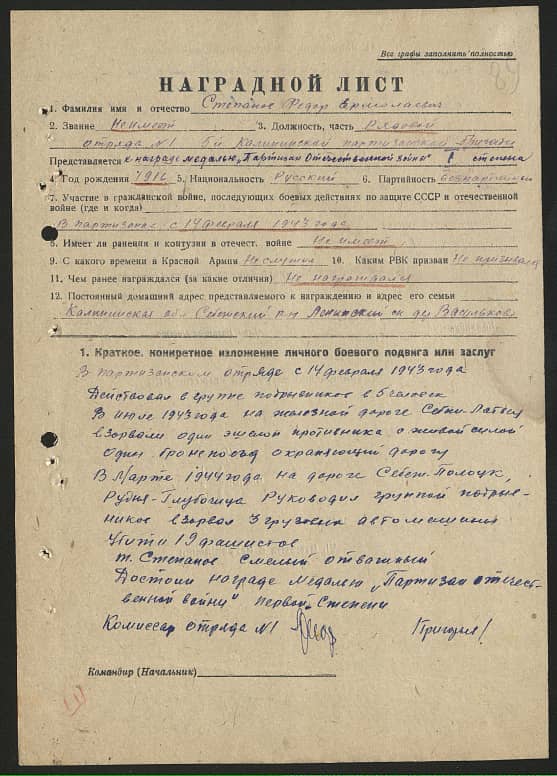 Все графы заполнять полностью
НАГРАДНОЙ ЛИСТ
1. Фамилия имя и отчество Степанов Федор Ермолаевич
2. Звание Не имеет 3. Должность, часть Рядовой
отряда №1 5й Калининской партизанской бригады
Представляется к награде медалью „Партизан Отечественной войны" I степени
4. Год рождения 1916 5. Национальность Русский 6. Партийность беспартийный
7. Участие в гражданской войне, последующих боевых действиях по защите СССР и отечественной
войне (где и когда)
В партизанах с 14 февраля 1943 года
8. Имеет ли ранения и контузии в отечест. войне Не имеет
9. С какого времени в Красной Армии Не служил 10. Каким РВК призван Не призывался
11. Чем ранее награждался (за какие отличия) Не награждался
12. Постоянный домашний адрес представляемого к награждению и адрес его семьи
Калининская обл Себежский р-н Ленинский с/с дер Васильково
1. Краткое, конкретное изложение личного боевого подвига или заслуг
В партизанском отряде с 14 февраля 1943 года
Действовал в группе подрывников в 6 человек
В июле 1943 года на железной дороге Себеж-Латвия
взорвали один эшелон противника с живой силой
Один бронепоезд охраняющий дорогу
В Марте 1944 года на дороге Себеж-Полоцк,
Рудня-Глубочица Руководил группой подрыв-
ников взорвал 3 грузовых автомашины
Убити 19 фашистов
т. Степанов Смелый отважный
Достоин награде медалью „Партизан отечест-
венной войны" первой Степени
Комиссар отряда №1
Командир (Начальник)